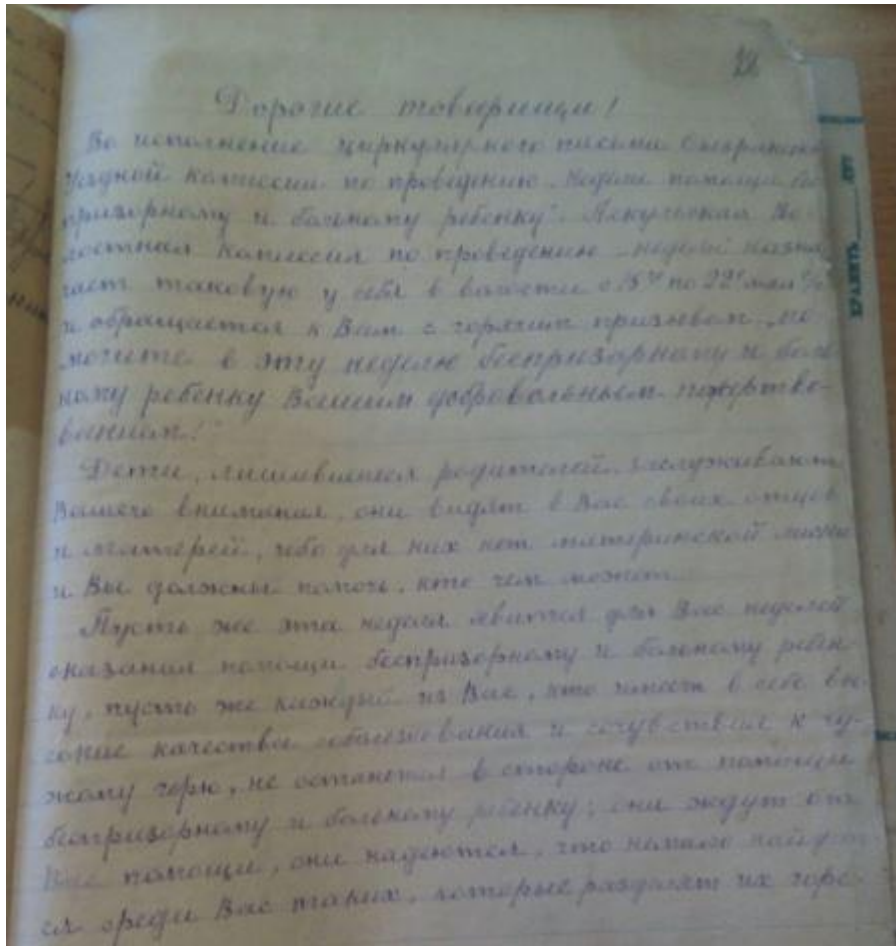 12
Дорогие товарищи!
Во исполнение циркулярного письма
Уездной комиссии по проведению „Недели помощи бес
призорному и больному ребенку". Во-
лостная комиссия по проведению „недели" назна
чает таковую у себя в волости с 15го по 22е мая с/г
и обращается к Вам с горячим призывом „по
могите в эту неделю беспризорному и боль
ному ребенку Вашим добровольным пожертво-
ванием!"
Дети, лишившиеся родителей заслуживают
Вашего внимания, они видят в Вас своих отцов
и матерей, ибо для них нет материнской ласки
и Вы должны помочь, кто чем может.
Пусть же эта неделя явится для Вас неделей
оказания помощи беспризорному и больному ребен-
ку, пусть же каждый из Вас, кто имеет в себе вы-
сокие качества соболезнования и сочувствия к чу-
жому горю, не останется в стороне от помощи
беспризорному и больному ребенку; они ждут от
Вас помощи, они надеются, что немало найдет
ся среди Вас таких, которые разделят их горе
ХРАНИТЬ ЛЕТ